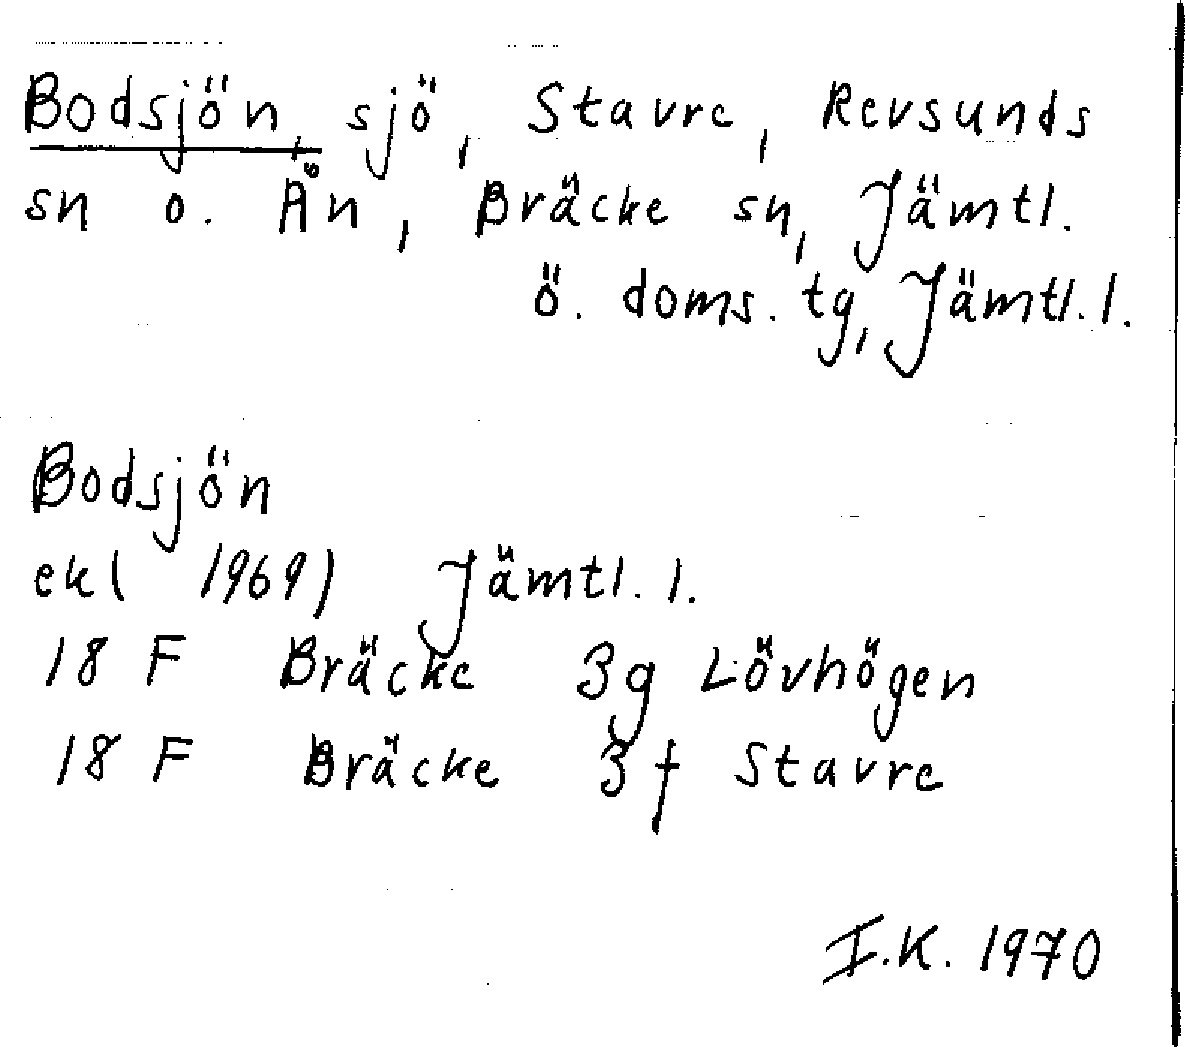 Bodsjön, sjö, Stavre, Revsunds
sn o. Ån, Bräcke sn, Jämtl.
ö. doms. tg, Jämtl. l.
Bodsjön
ek ( 1969) Jämtl. l.
18 F Bräcke 3g Lövhögen
18 F Bräcke 3f Stavre
I.K. 1970